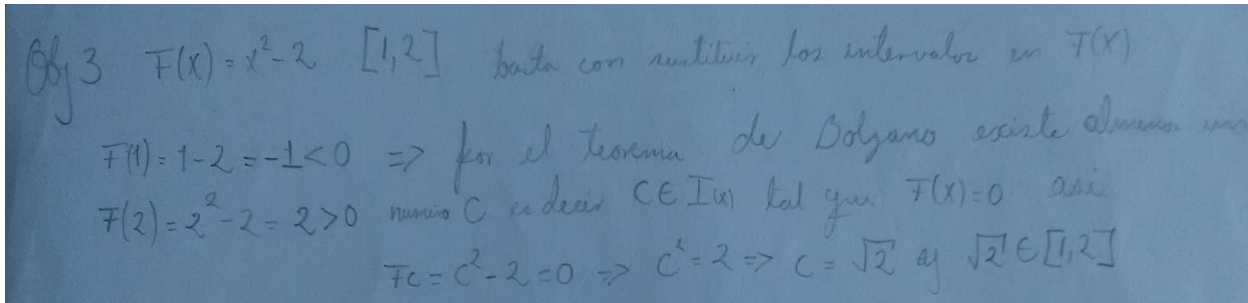 Obj 3 F(x) = x² - 2 [1,2] basta con sustituir los intervalos en F(x)
F(1) = 1 - 2 = -1 < 0 => por el teorema de Bolzano existe almenos un
F(2) = 2² - 2 = 2 > 0 numero C es decir C ∈ I(x) tal que F(x) = 0 asi
Fc = C² - 2 = 0 => C² = 2 => C = √2 y √2 ∈ [1,2]